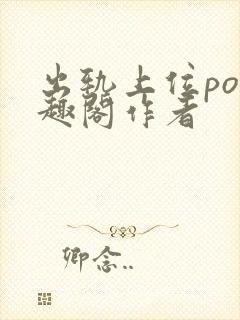 出轨上位po
趣阁作者
卿念..